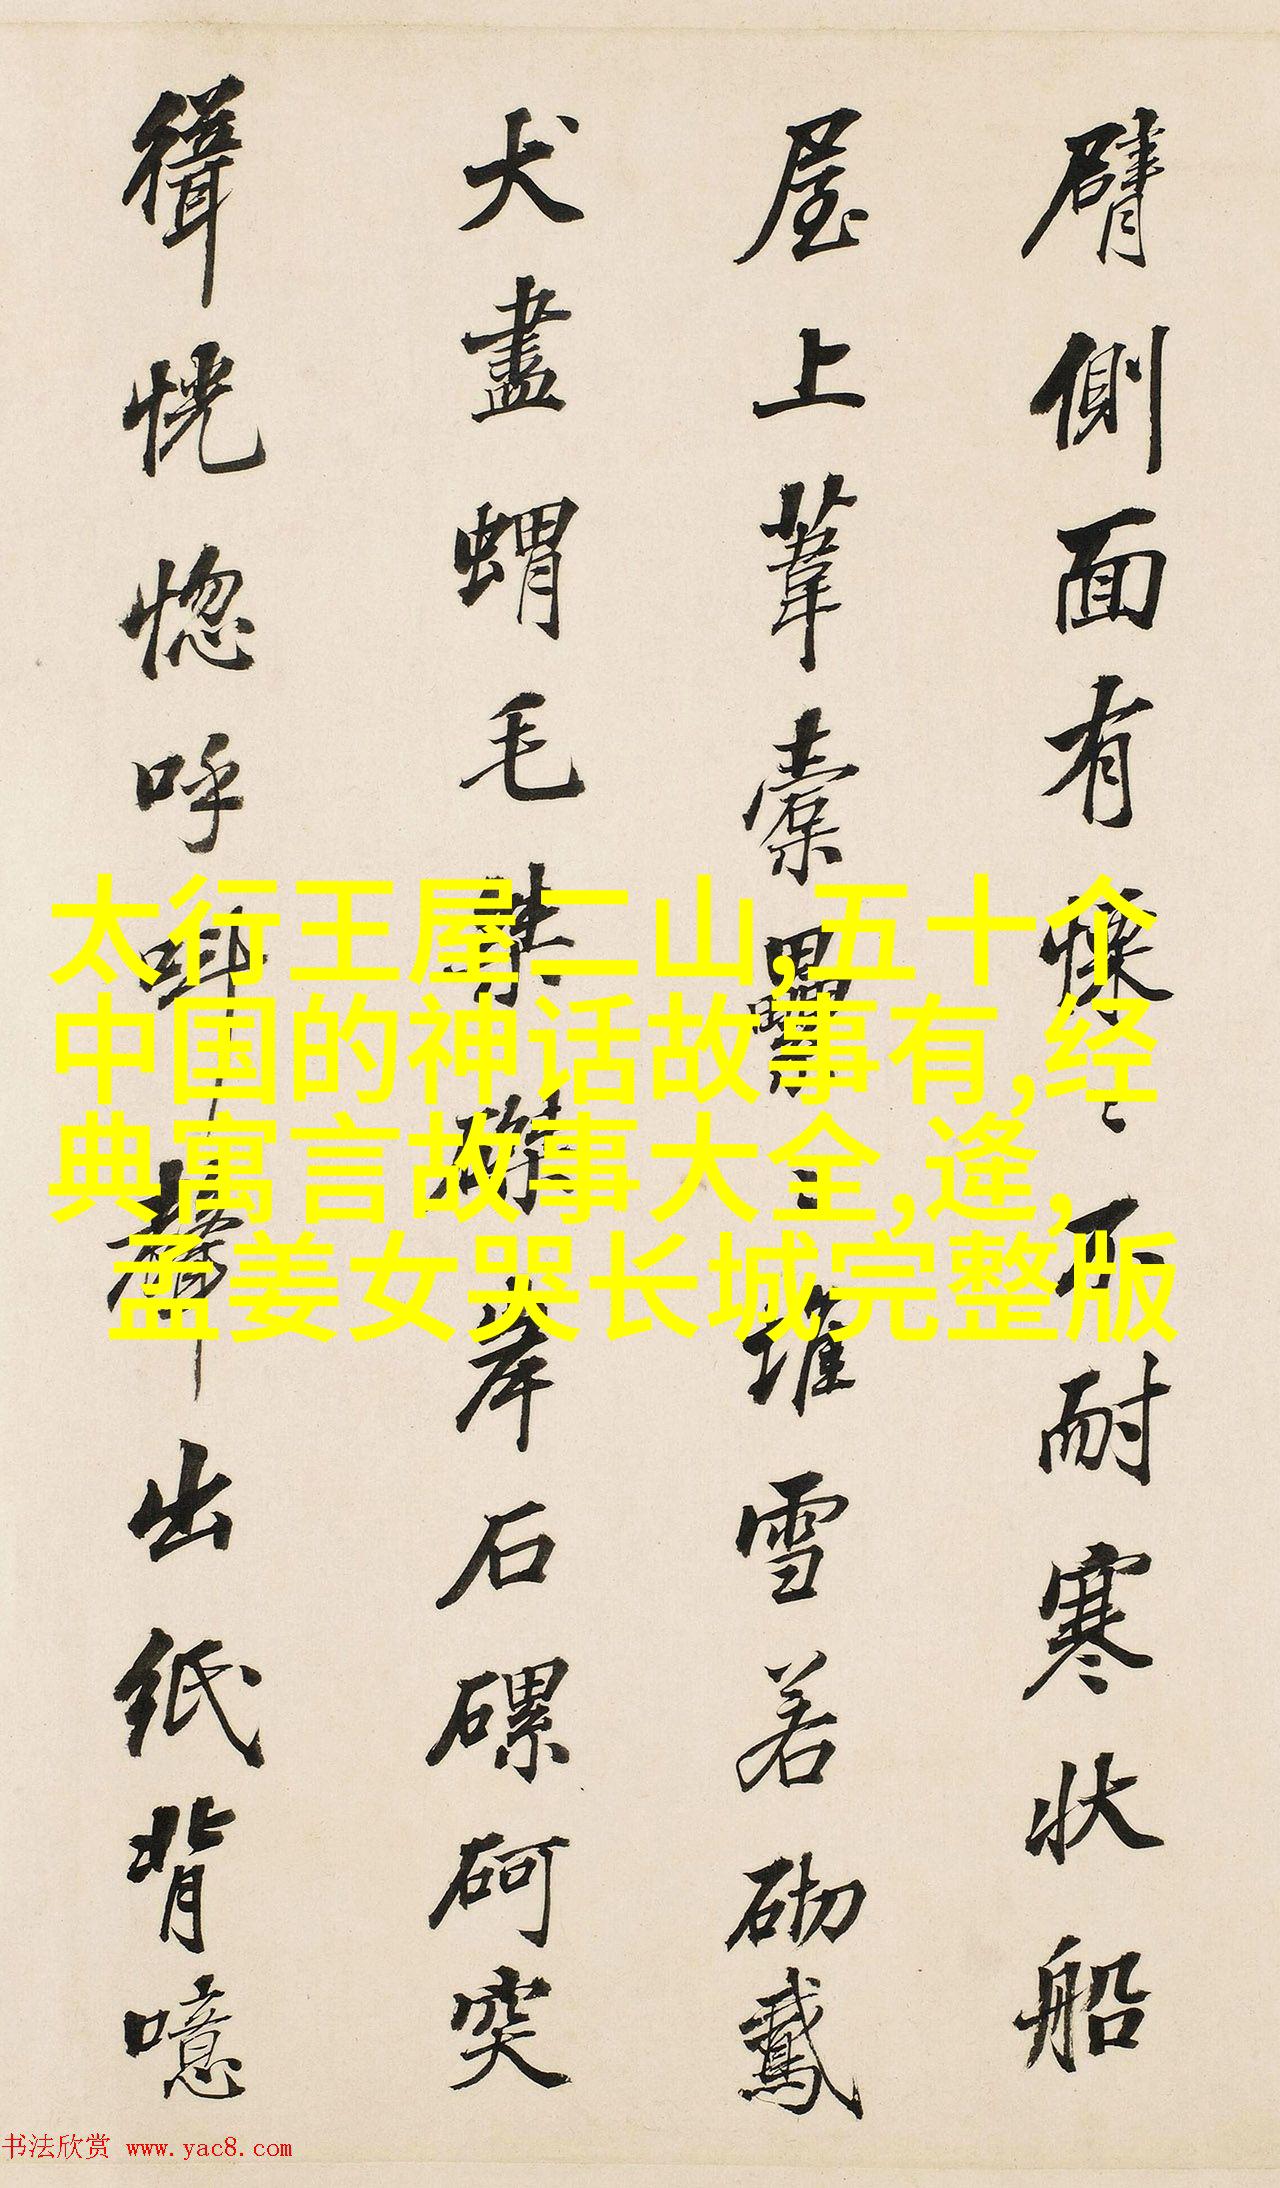 臂側面有〻不耐寒狀船
屋上葦橐纍〻堆雪若砌鵞
犬盡蝟毛磔岸石磥砢突
恍惚呼叫聲出紙背噫
太行王屋二山,五十个
中国的神话故事有,经
典寓言故事大全,逄,
孟姜女哭长城完整版
书法欣赏 www.yac8.com